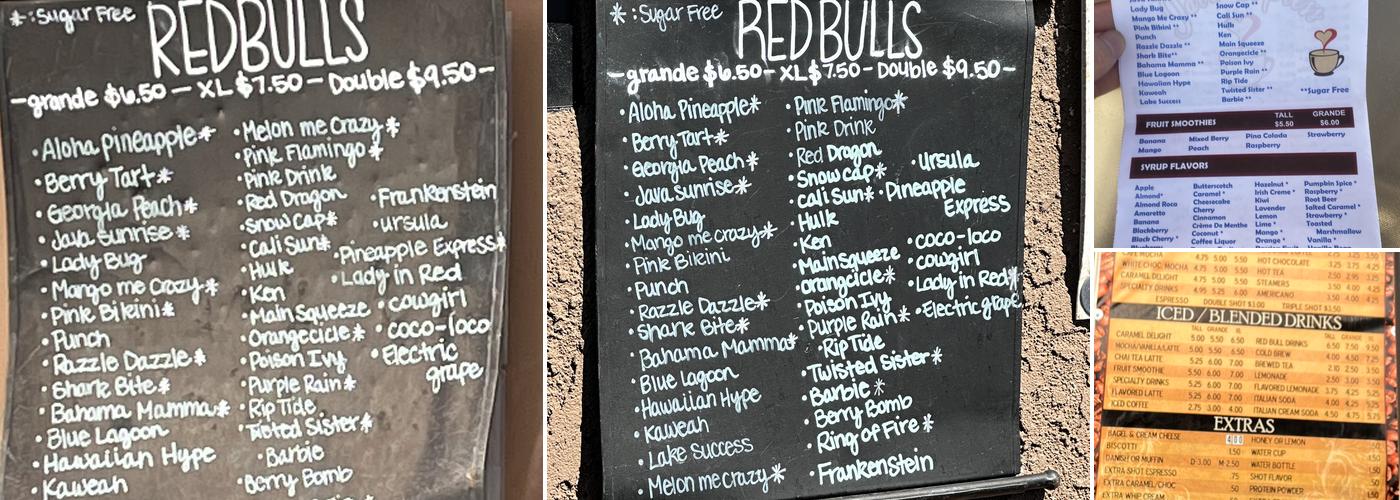 *:Sugar Free
REDBULLS
-grande $6.50 - XL $7.50 - Double $9.50-
• Aloha Pineapple*
• Berry Tart*
• Georgia Peach*
• Java Sunrise*
• Lady Bug
• Mango me Crazy*
• Pink Bikini*
• Punch
• Razzle Dazzle*
• Shark Bite*
• Bahama Mamma*
• Blue Lagoon
• Hawaiian Hype
• Kaweah
• Melon me Crazy*
• Pink Flamingo*
• Pink Drink
• Red Dragon
• Snow Cap*
• Cali Sun*
• Hulk
• Ken
• Main Squeeze
• Orangecicle*
• Poison Ivy
• Purple Rain*
• Rip Tide
• Twisted Sister*
• Barbie
• Berry Bomb
• Frankenstein
• ursula
• Pineapple Express*
• Lady in Red
• cowgirl
• coco-loco
• Electric
grape
*:Sugar Free
REDBULLS
-grande $6.50- XL $7.50 - Double $9.50-
• Aloha Pineapple*
• Berry Tart*
• Georgia Peach*
• Java Sunrise*
• Lady Bug
• Mango me crazy*
• Pink Bikini
• Punch
• Razzle Dazzle*
• Shark Bite*
• Bahama Mamma*
• Blue Lagoon
• Hawaiian Hype
• Kaweah
• Lake Success
• Melon me crazy*
• Pink Flamingo*
• Pink Drink
• Red Dragon
• Snow cap*
• Cali Sun*
• Hulk
• Ken
• Mainsqueeze
• orangcicle*
• Poison Ivy
• Purple Rain*
• Rip Tide
• Twisted Sister*
• Barbie*
• Berry Bomb
• Ring of Fire*
• Frankenstein
• Ursula
• Pineapple
Express
• coco-loco
• cowgirl
• Lady in Red*
• Electric grape
Lady Bug
Mango Me Crazy **
Pink Bikini **
Punch
Razzle Dazzle **
Shark Bite**
Bahama Mamma **
Blue Lagoon
Hawaiian Hype
Kaweah
Lake Success
Snow Cap **
Cali Sun **
Hulk
Ken
Main Squeeze
Orangecicle **
Poison Ivy
Purple Rain **
Rip Tide
Twisted Sister **
Barbie **
**Sugar Free
FRUIT SMOOTHIES TALL GRANDE
$5.50 $6.00
Banana Mixed Berry Pina Colada Strawberry
Mango Peach Raspberry
SYRUP FLAVORS
Apple
Almond*
Almond Roca
Amaretto
Banana
Blackberry
Black Cherry *
Butterscotch
Caramel *
Cheesecake
Cherry
Cinnamon
Crème De Menthe
Coconut *
Coffee Liquor
Hazelnut *
Irish Creme *
Kiwi
Lavender
Lemon
Lime *
Mango *
Orange *
Pumpkin Spice *
Raspberry *
Root Beer
Salted Caramel *
Strawberry *
Toasted
Marshmallow
Vanilla *
CAFE MOCHA 4.75 5.00 5.50 HOT CHOCOLATE 3.25 3.75 4.25
WHITE CHOC. MOCHA 4.75 5.00 5.50 HOT TEA 2.50 2.95 3.25
CARAMEL DELIGHT 4.75 5.00 5.50 STEAMERS 3.50 4.00 4.25
SPECIALTY DRINKS 4.95 5.25 6.00 AMERICANO 3.50 4.00 4.25
ESPRESSO DOUBLE SHOT $1.00 TRIPLE SHOT $1.50
ICED / BLENDED DRINKS
TALL GRANDE XL TALL GRANDE XL
CARAMEL DELIGHT 5.00 5.50 6.50 RED BULL DRINKS 6.50 7.50 9.50
MOCHA/VANILLA/LATTE 5.00 5.50 6.50 COLD BREW 4.00 4.50 7.25
CHAI TEA LATTE 5.25 6.00 7.00 BREWED TEA 2.10 2.50 3.50
FRUIT SMOOTHIE 5.50 6.00 7.00 LEMONADE 2.50 3.00 3.50
SPECIALTY DRINKS 5.25 6.00 7.00 FLAVORED LEMONADE 3.75 4.25 5.25
FLAVORED LATTE 5.25 6.00 7.00 ITALIAN SODA 4.00 4.25 5.25
ICED COFFEE 2.75 3.00 4.00 ITALIAN CREAM SODA 4.50 4.75 5.75
EXTRAS
BAGEL & CREAM CHEESE 4.00 HONEY OR LEMON .50
BISCOTTI 1.50 WATER CUP .50
DANISH OR MUFFIN D-3.00 M-2.50 WATER BOTTLE 1.50
EXTRA SHOT ESPRESSO .75 SHOT FLAVOR .50
EXTRA CARAMEL/CHOC .50 PROTEIN POWDER 1.50
EXTRA WHIP CREAM